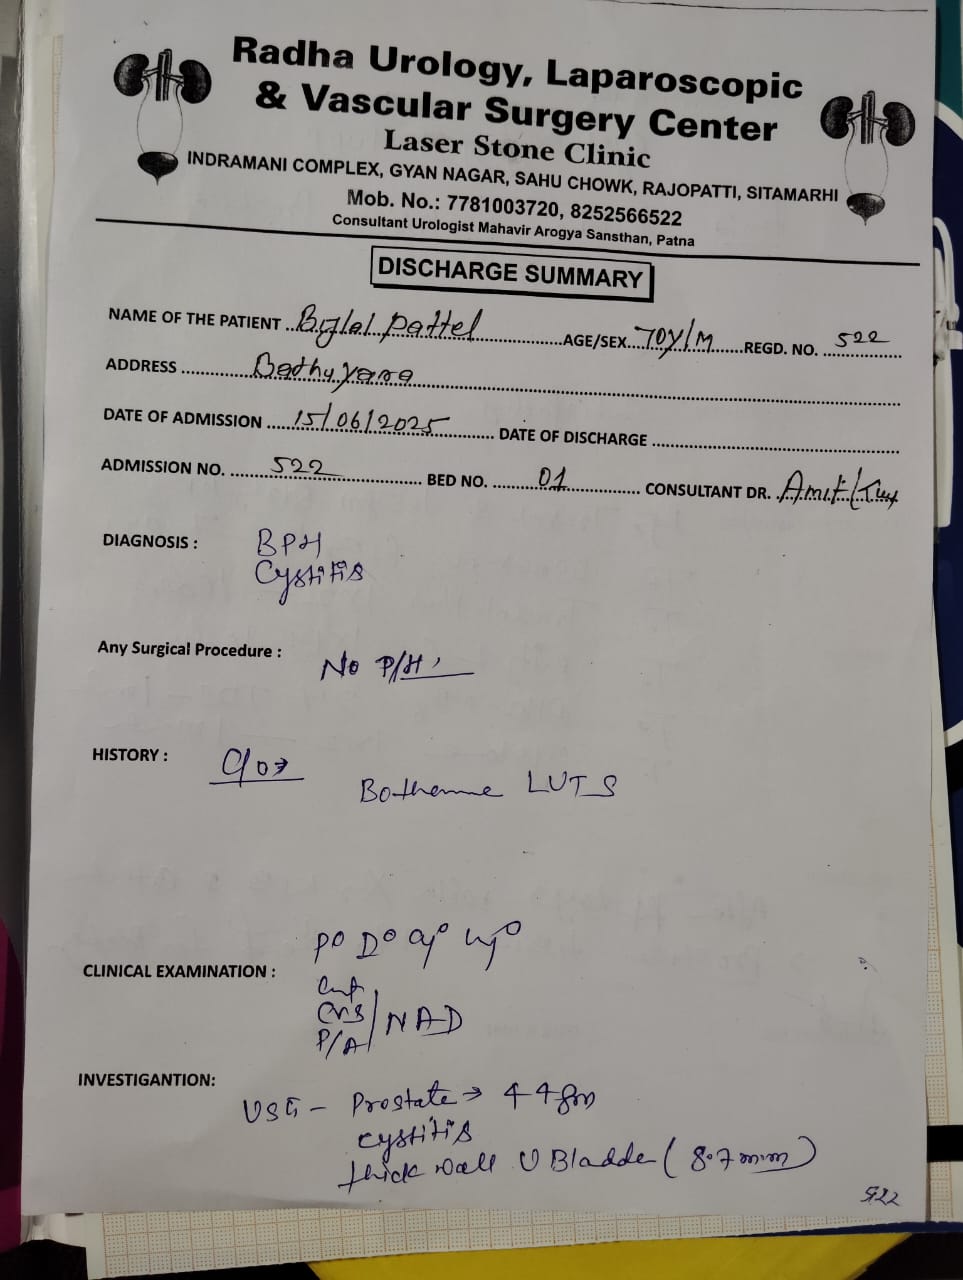 Radha Urology, Laparoscopic
& Vascular Surgery Center
Laser Stone Clinic
INDRAMANI COMPLEX, GYAN NAGAR, SAHU CHOWK, RAJOPATTI, SITAMARHI
Mob. No.: 7781003720, 8252566522
Consultant Urologist Mahavir Arogya Sansthan, Patna
DISCHARGE SUMMARY
NAME OF THE PATIENT .. pattel AGE/SEX... 70Y/M REGD. NO. ... 522
ADDRESS ...
DATE OF ADMISSION ... 15/06/2025 DATE OF DISCHARGE ...
ADMISSION NO. ... 522 BED NO. ... 01 CONSULTANT DR. . Amit
DIAGNOSIS : BPH
Cystitis
Any Surgical Procedure : No P/H
HISTORY : C/o →
LUTS
CLINICAL EXAMINATION :
CVS
P/A NAD
INVESTIGANTION:
USG - Prostate → 44gm
cystitis
thick wall U Bladder (8.7 mm)
522